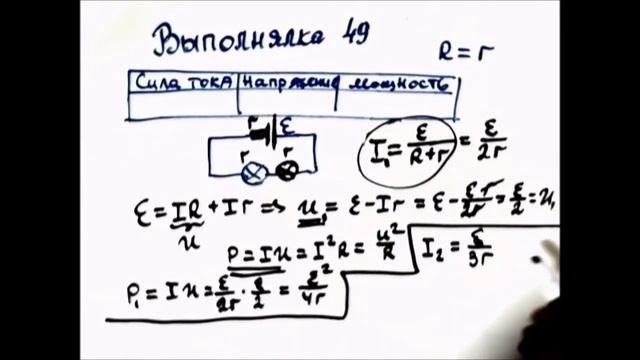 Выполнялка 49
R = r
Сила тока | Напряжение | мощность
r ε
r r
I₁ = ε/(R+r) = ε/2r
ε = IR + Ir ⇒ u₁ = ε − Ir = ε − εr/2r = ε/2 = u₁
u
P = Iu = I²R = u²/R
I₂ = ε/3r
P₁ = Iu = ε/2r · ε/2 = ε²/4r